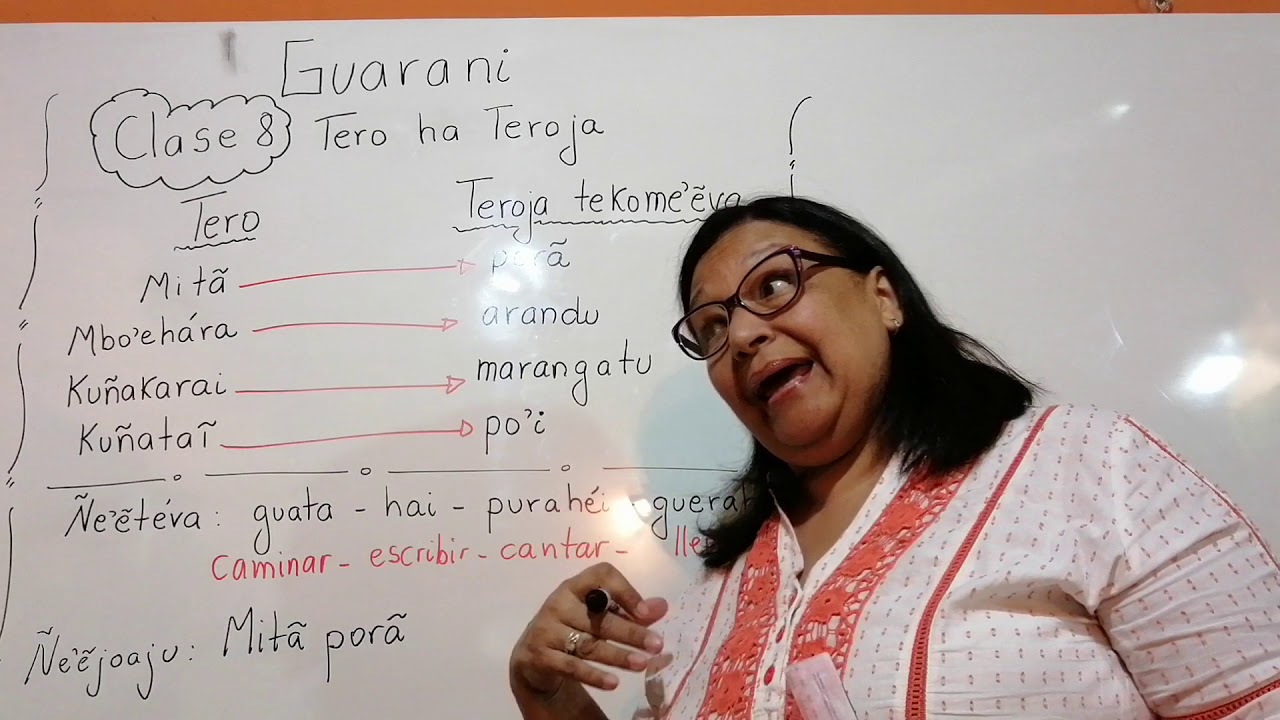 Guarani
Clase 8 Tero ha Teroja
Tero Teroja tekome'ẽva
Mitã porã
Mbo'ehára arandu
Kuñakarai marangatu
Kuñataĩ po'i
Ñe'ẽtéva: guata - hai - purahéi -
caminar - escribir - cantar -
Ñe'ẽjoaju: Mitã porã